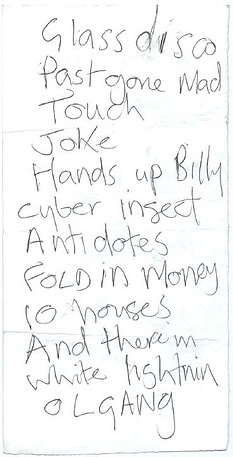 Glass disco
Past gone Mad
Touch
Joke
Hands up Billy
cyber insect
Antidotes
FOLD IN Money
10 houses
And therein
white lightnin
OLGANG